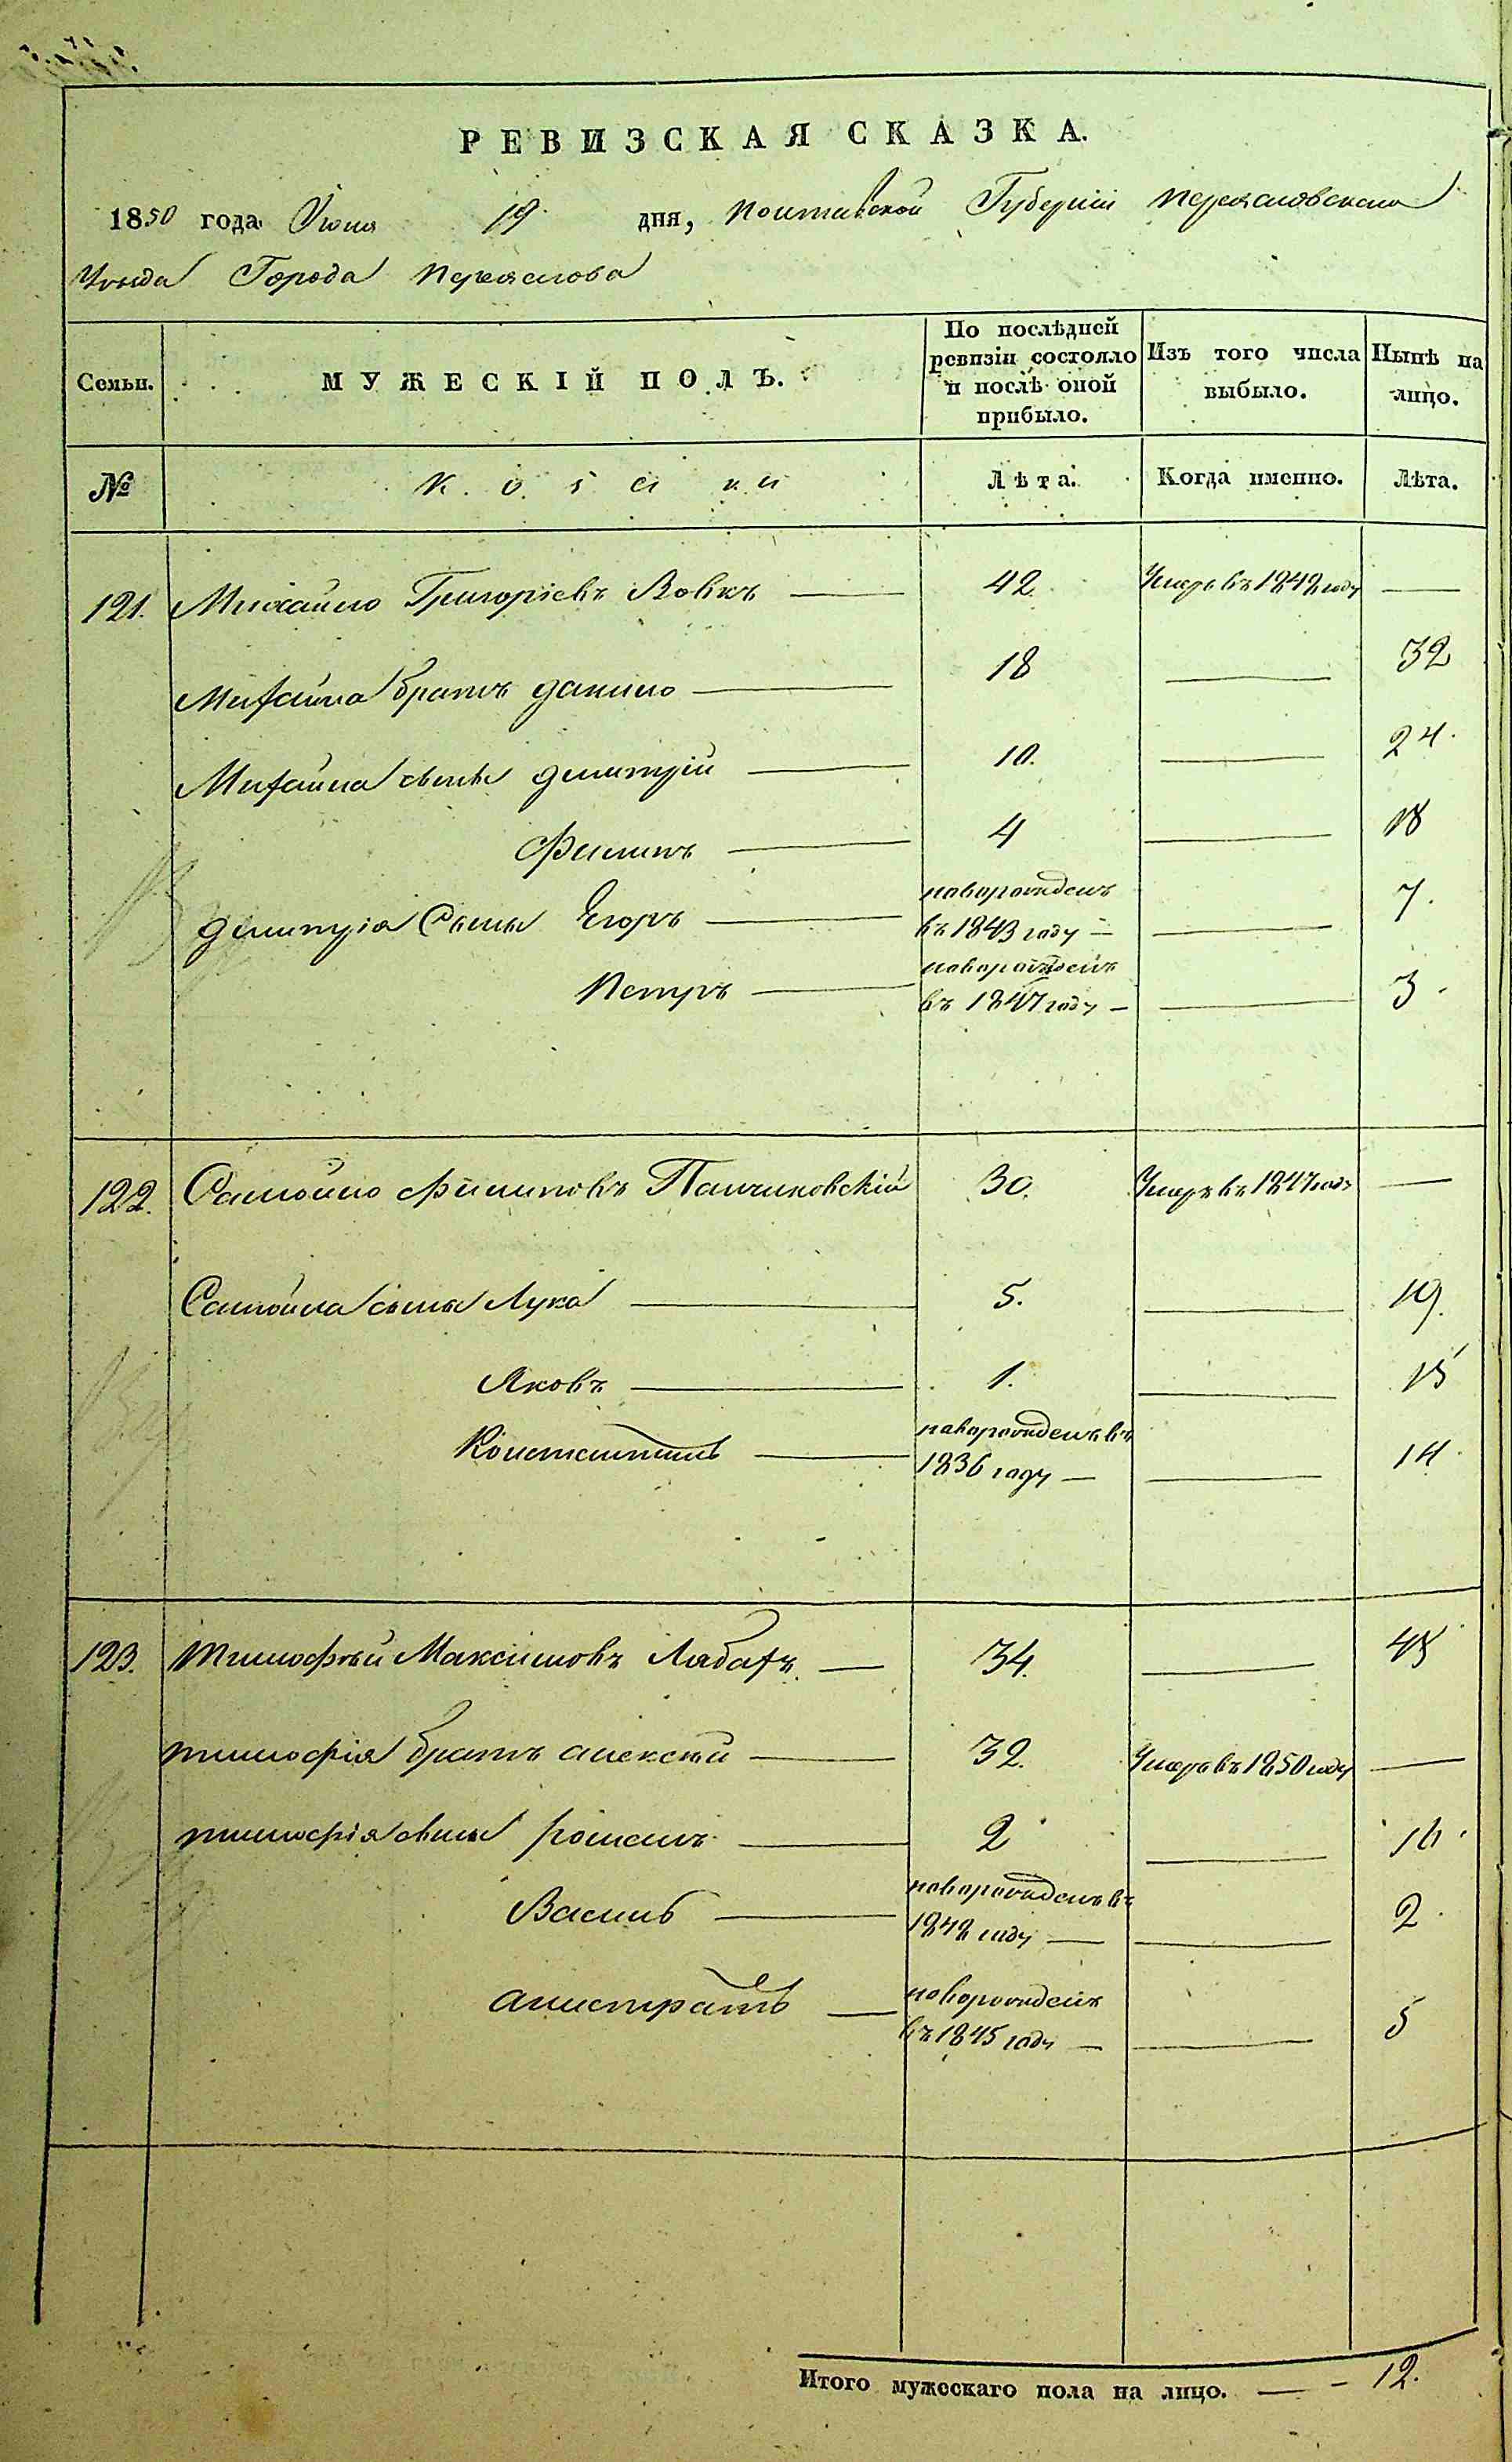 РЕВИЗСКАЯ СКАЗКА.
1850 года Июня 19 дня, Полтавской Губерніи Переяславскаго
Уезда Города Переяслова
Семьи. МУЖЕСКІЙ ПОЛЪ. По послѣдней ревизіи состояло и послѣ оной прибыло. Изъ того числа выбыло. Нынѣ на лицо.
№ Козаки Лѣта. Когда именно. Лѣта.
121. Михайло Григоріевъ Вовкъ — 42. Умеръ въ 1848 году —
Михайла братъ данило — 18 — 32
Михайла сынъ дмитрій — 10. — 24.
Филипъ — 4 — 18
дмитрія Сынъ Егоръ — новорожденъ въ 1843 году — — 7.
Петръ — новорожденъ въ 1847 году — — 3.
122. Самойло Филиповъ Панчиковскій 30. Умеръ въ 1847 году —
Самойла сынъ Лука — 5. — 19.
Яковъ — 1. — 15
Константинъ — новорожденъ въ 1836 году — — 14.
123. тимофѣй Максимовъ Лябахъ. — 34. — 48
тимофія братъ алексѣй — 32. Умеръ въ 1850 году —
тимофія сынъ романъ — 2 — 16.
Василь — новорожденъ въ 1848 году — — 2.
анистратъ — новорожденъ въ 1845 году — — 5
Итого мужескаго пола на лицо. — - 12.